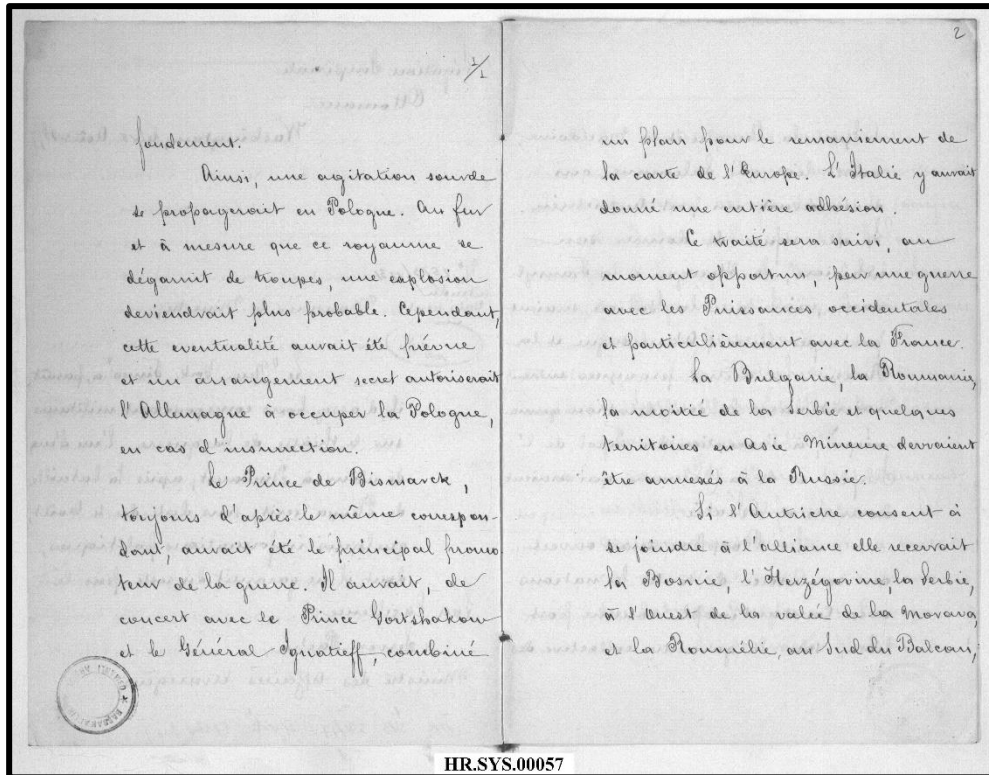 1/1
fondement.
Ainsi, une agitation sourde
se propagerait en Pologne. Au fur
et à mesure que ce royaume se
dégarnit de troupes, une explosion
deviendrait plus probable. Cependant,
cette eventualité aurait été prévue
et un arrangement secret autoriserait
l'Allemagne à occuper la Pologne,
en cas d'insurrection.
Le Prince de Bismarck,
toujours d'après le même correspon-
dant, aurait été le principal promo-
teur de la guerre. Il aurait, de
concert avec le Prince Gortshakow
et le Général Ignatieff, combiné
2
un plan pour le remaniement de
la carte de l'Europe. L'Italie y aurait
donné une entière adhésion.
Ce traité sera suivi, au
moment opportun, par une guerre
avec les Puissances occidentales
et particulièrement avec la France.
La Bulgarie, la Roumanie,
la moitié de la Serbie et quelques
territoires en Asie Mineure devraient
être annexés à la Russie.
Si l'Autriche consent à
se joindre à l'alliance elle recevrait
la Bosnie, l'Herzégovine, la Serbie,
à l'Ouest de la valée de la Morava,
et la Roumélie, au Sud du Balcan,
HR.SYS.00057